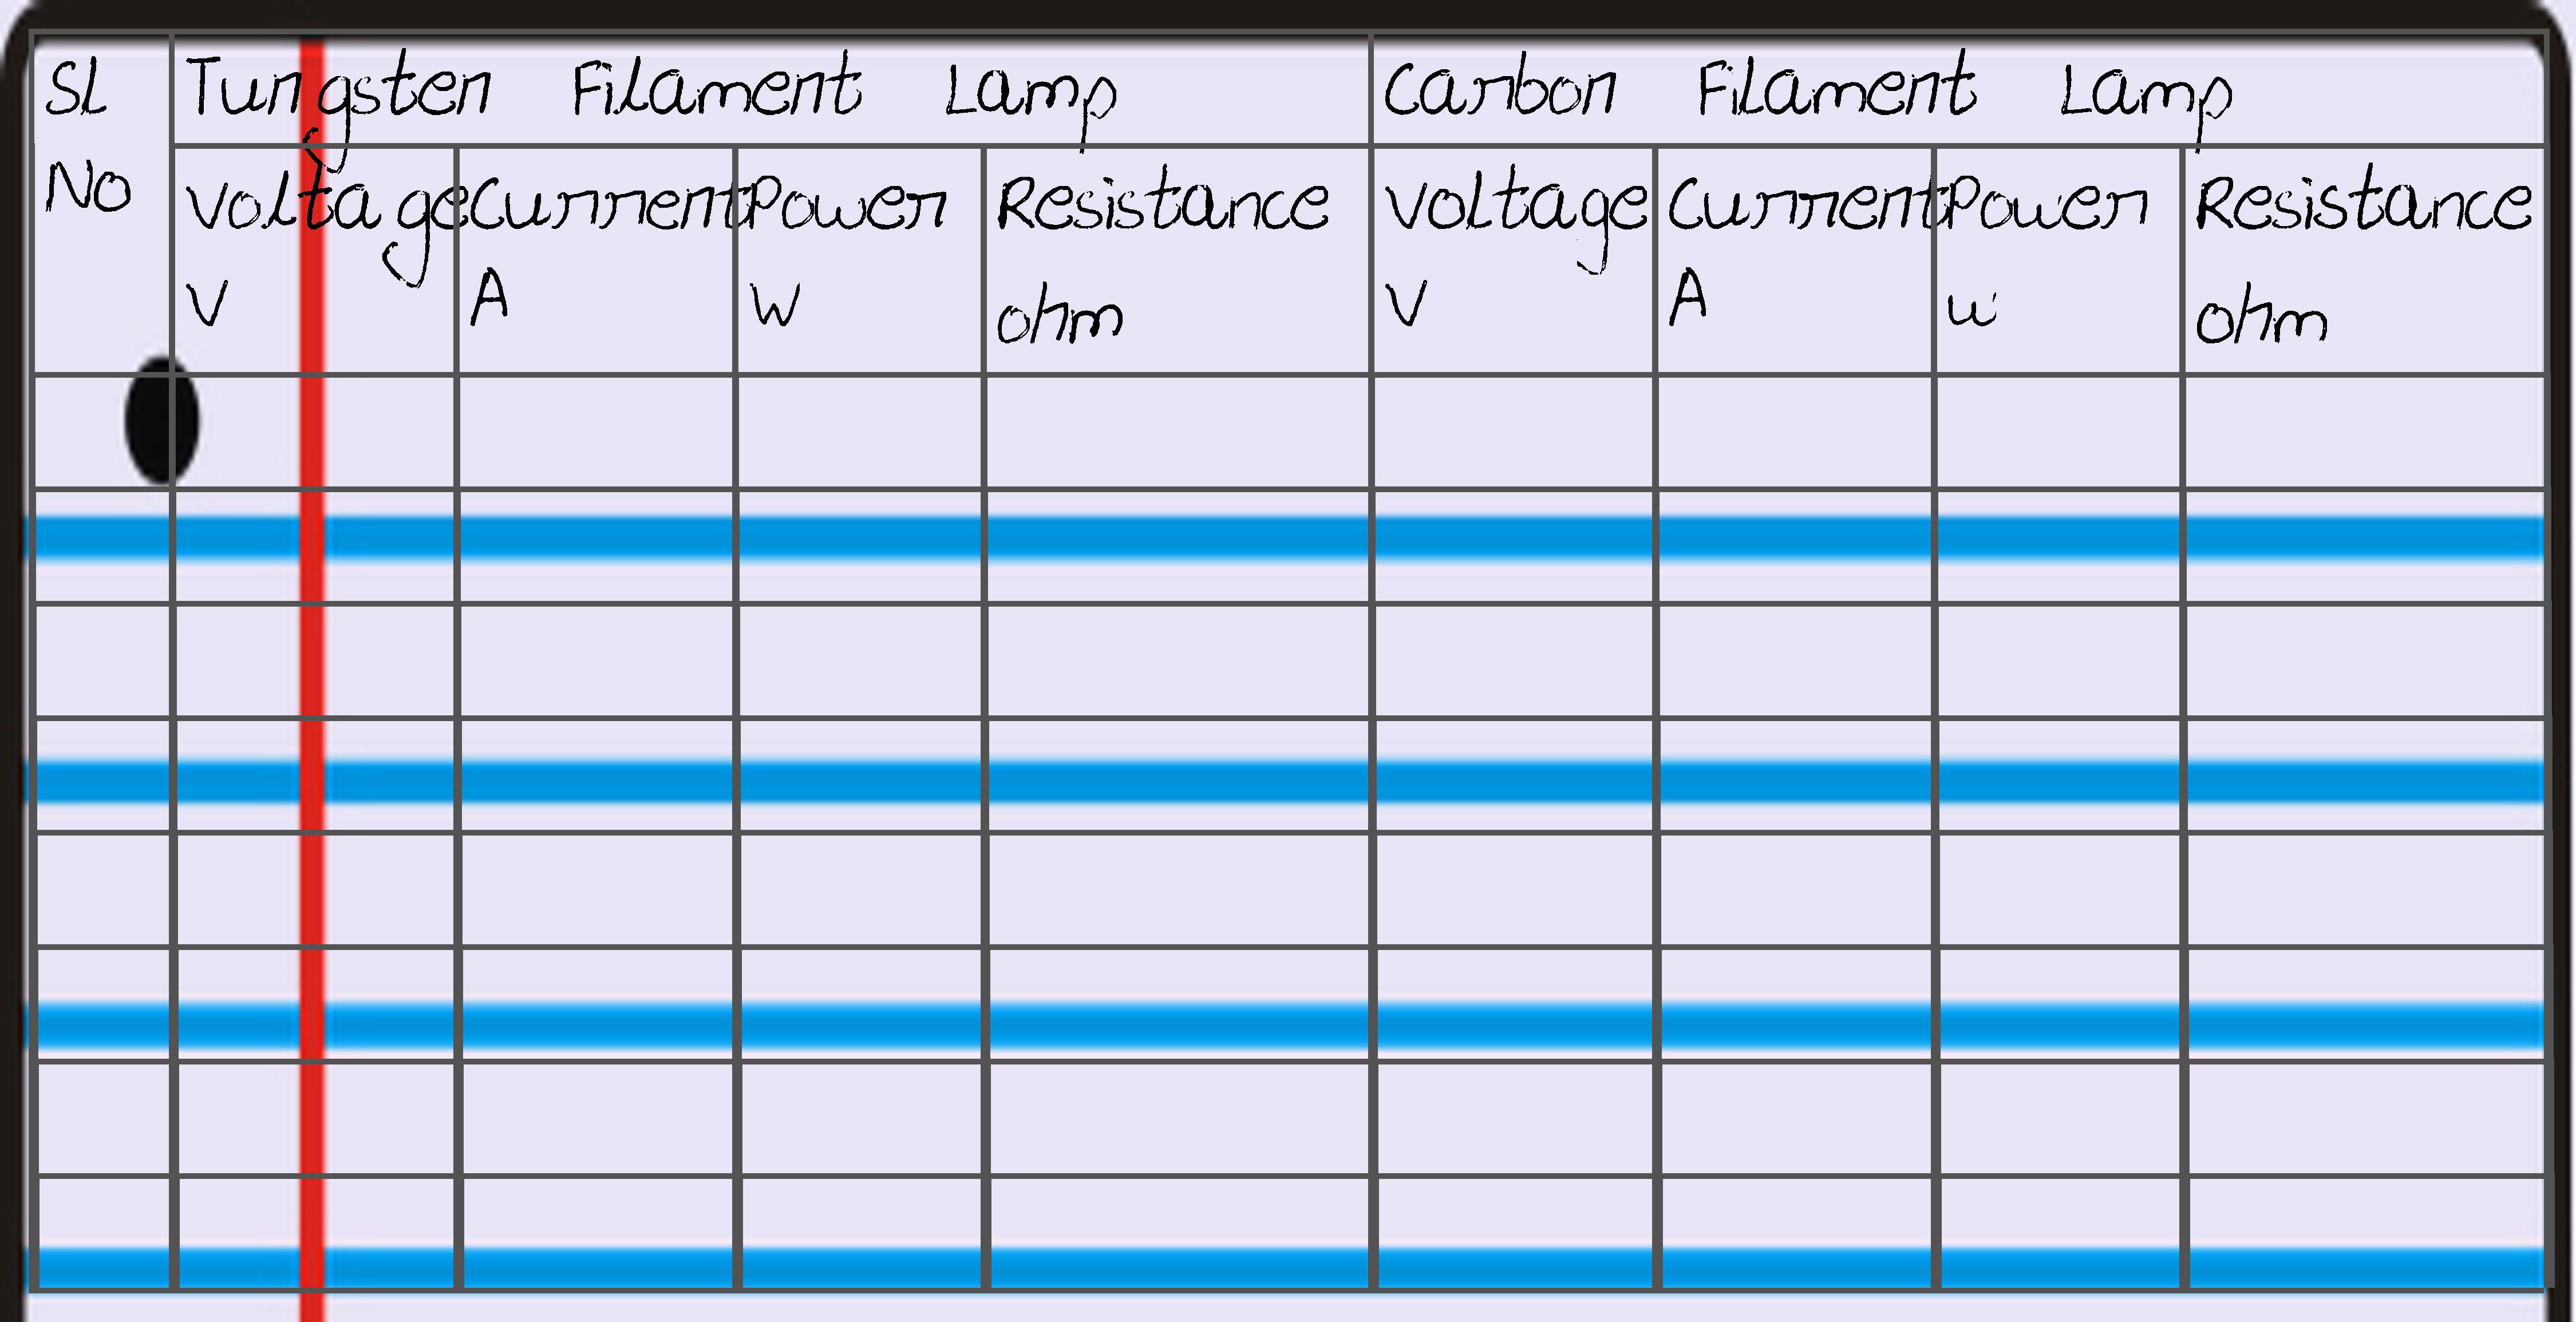 Sl No
Tungsten Filament Lamp
Carbon Filament Lamp
Voltage V
Current A
Power W
Resistance ohm
Voltage V
Current A
Power W
Resistance ohm